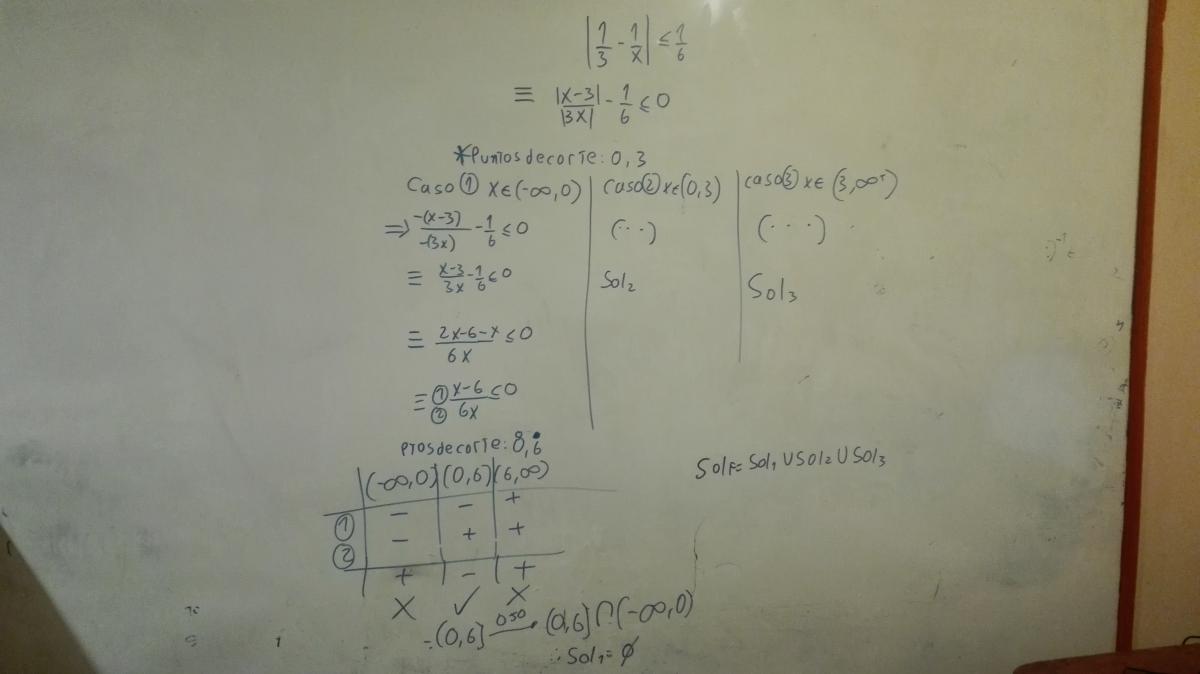 |1/3 - 1/x| ≤ 1/6
≡ |x-3|/|3x| - 1/6 ≤ 0
*Puntos de corte: 0, 3
Caso ① x∈(-∞,0)
⇒ -(x-3)/-(3x) - 1/6 ≤ 0
≡ x-3/3x - 1/6 ≤ 0
≡ 2x-6-x/6x ≤ 0
≡ ① x-6/② 6x ≤ 0
Ptos de corte: 0, 6
(-∞,0) (0,6) (6,∞)
① - - +
② - + +
+ - +
X ✓ X
=(0,6] (0,6]∩(-∞,0)
∴ Sol₁=∅
Caso ② x∈(0,3)
(...)
Sol₂
Caso ③ x∈(3,∞⁺)
(...)
Sol₃
SolF= Sol₁ ∪ Sol₂ ∪ Sol₃